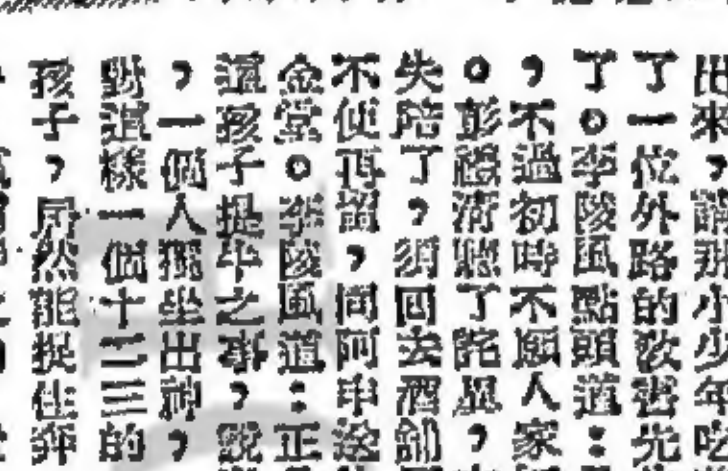 出來，讓那小少年吃
了一位外路的教書先
了。李陵風點頭道：
，不過初時不願人家
。彭禮清聽了詫異，
失陪了，須回去酒舖
不便再留，問阿申途
金堂。李陵風道：正
這孩子提牛之事，說
，一個人獨坐出神，
對這樣一個十二三的
孩子，居然能捉住奔